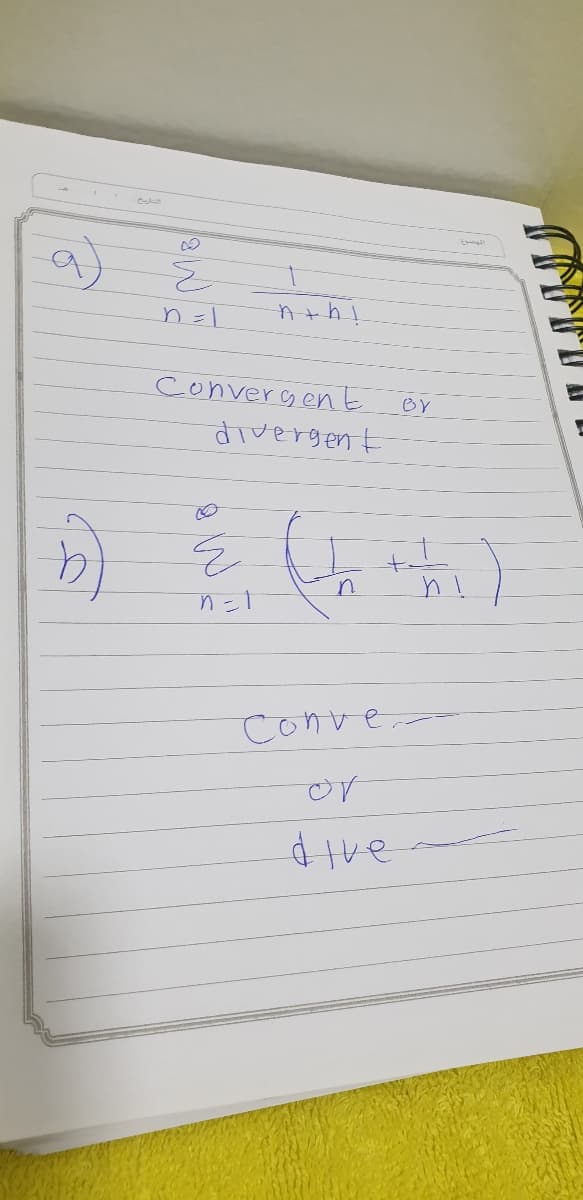 التاريخ / /
الموضوع
a) ∞
Σ 1
n=1 n+n!
Convergent or
divergent
b) ∞
Σ (1/n + 1/n!)
n=1
Conve
or
dive